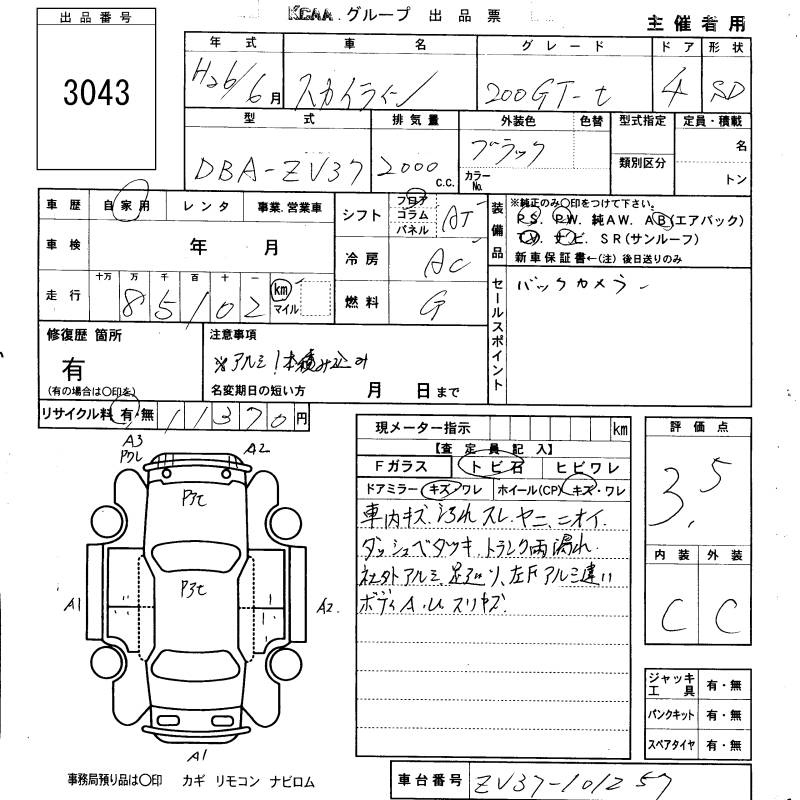 KCAA グループ 出品票
主催者用
出品番号
3043
年式 車名 グレード ドア 形状
H26/6月 スカイライン 200GT-t 4 SD
型式 排気量 外装色 色替 型式指定 定員・積載
DBA-ZV37 2000 c.c. ブラック 名
カラーNo. 類別区分 トン
車歴 自家用 レンタ 事業.営業車
車検 年 月
走行 十万 万 千 百 十 一
85102 km マイル
シフト フロア コラム パネル AT
冷房 AC
燃料 G
装備品
※純正のみ○印をつけて下さい。
PS. PW. 純AW. AB(エアバック)
TV. ナビ. SR(サンルーフ)
新車保証書←(注) 後日送りのみ
セールスポイント
バックカメラー
修復歴 箇所
有
(有の場合は○印を)
注意事項
※アルミ1本積み込み
名変期日の短い方 月 日まで
リサイクル料 有・無 11370円
現メーター指示 km
【査定員記入】
Fガラス トビ石 ヒビワレ
ドアミラー キズ・ワレ ホイール(CP) キズ・ワレ
車内キズ.汚れ.スレ.ヤニ.ニオイ.
ダッシュベタツキ.トランク雨漏れ.
社外アルミ.足廻り、左Fアルミ違い
ボディA.U.スリキズ.
評価点
3.5
内装 外装
C C
ジャッキ工具 有・無
パンクキット 有・無
スペアタイヤ 有・無
A3
PクレA2
Pアセ
Pアセ
A1 A2.
A1
事務局預り品は○印 カギ リモコン ナビロム
車台番号 ZV37-101257